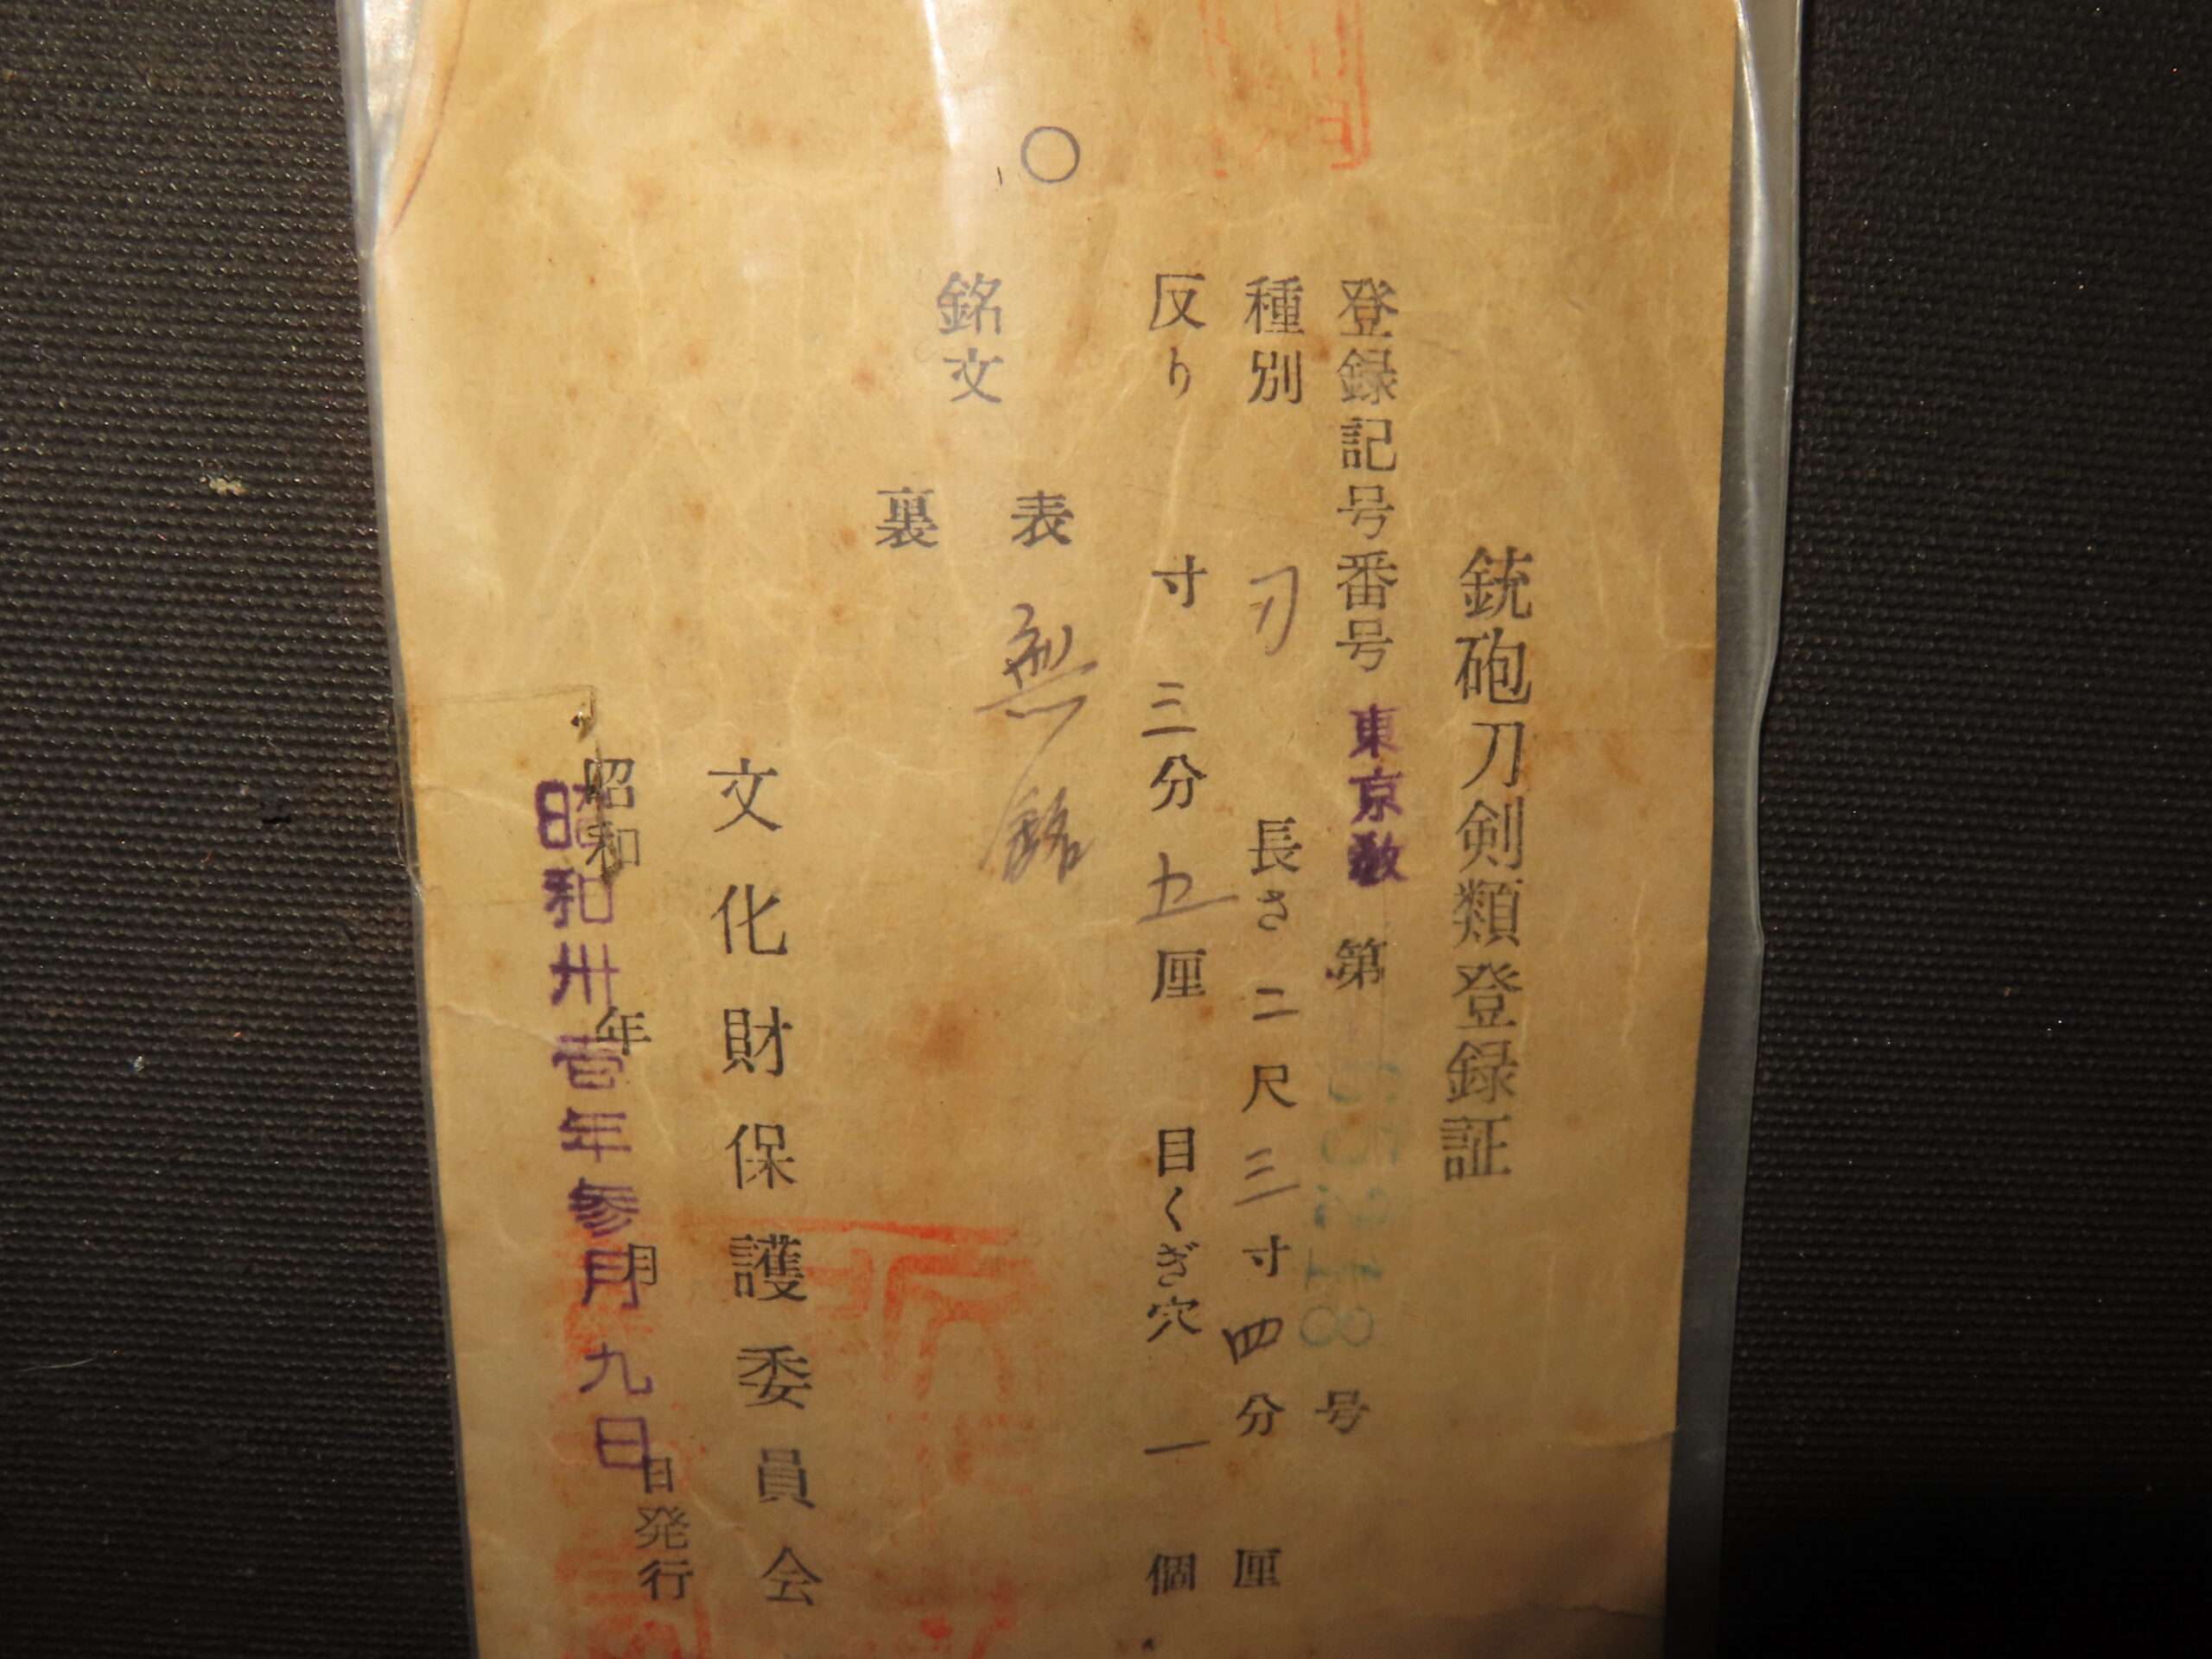 銃砲刀剣類登録証
登録記号番号 東京教 第 号
種別 刀 長さ 二尺三寸四分 厘
反り 寸三分五厘 目くぎ穴 一個
銘文
表 無銘
裏
文化財保護委員会
昭和 年 月 日発行
昭和卅壱年参月九日